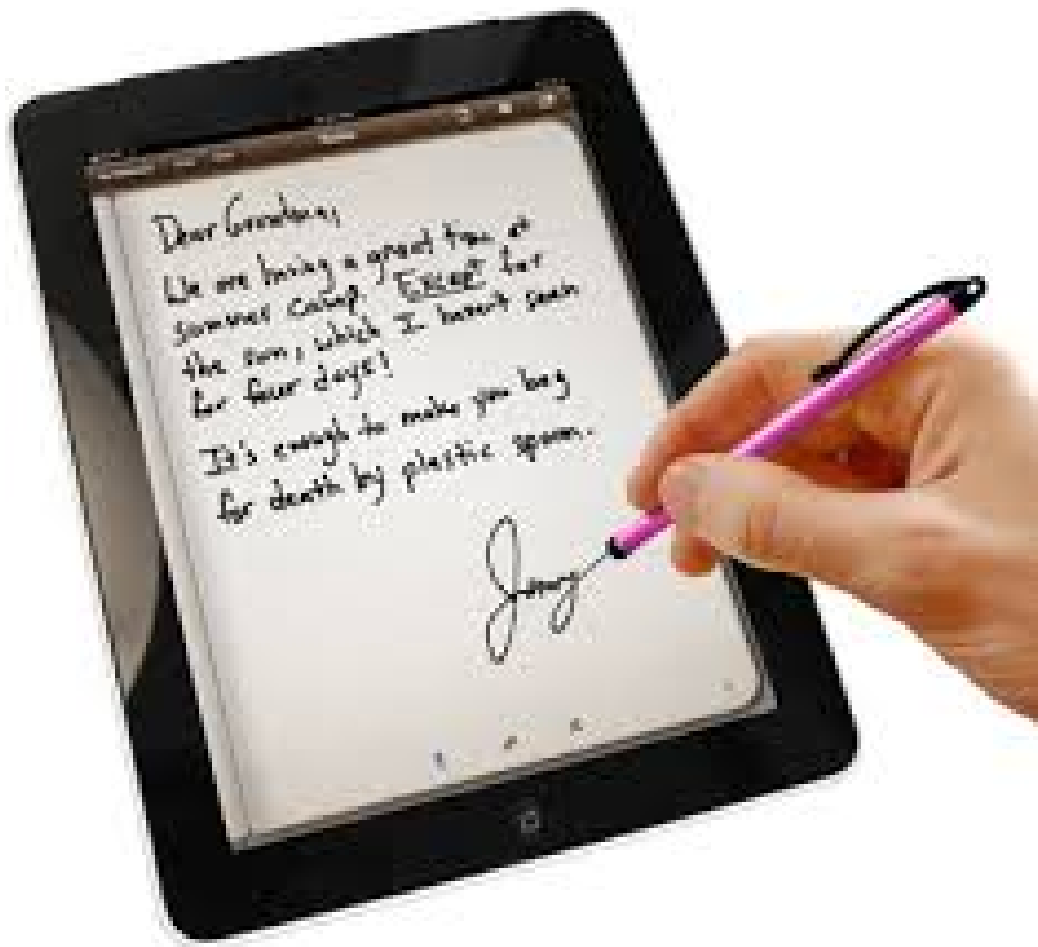 Dear Grandma,
We are having a great time at
summer camp. Except for
the sun, which I havent seen
for four days!
It's enough to make you beg
for death by plastic spoon.